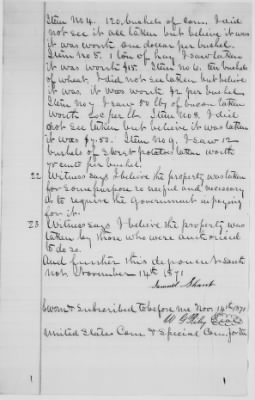 Item No 4. 120 bushels of corn. I did
not see it all taken but believe it was
it was worth one dollar per bushel.
Item No 5. 1 ton of hay I saw taken
it was worth $15. Item No 6. ten bushels
of wheat, I did not see taken but believe
it was. it was worth $2 per bushel.
Item No 7 I saw 50 lbs of bacon taken
worth 20c per lb. Item No 8. I did
not see taken but believe it was taken
it was $7.50. Item No 9. I saw 12
bushels of sweet potatoes taken worth
75 cents per bushel.
22 Witness says I believe the property was taken
for some purpose so useful and necessary
as to require the Government in paying
for it.
23 Witness says I believe the property was
taken by those who were authorized
to do so.
And further this deponent saith
not. November 14th 1871
Samuel Short
Sworn & Subscribed to before me Nov 14th 1871
United States Com & Special Com. for the